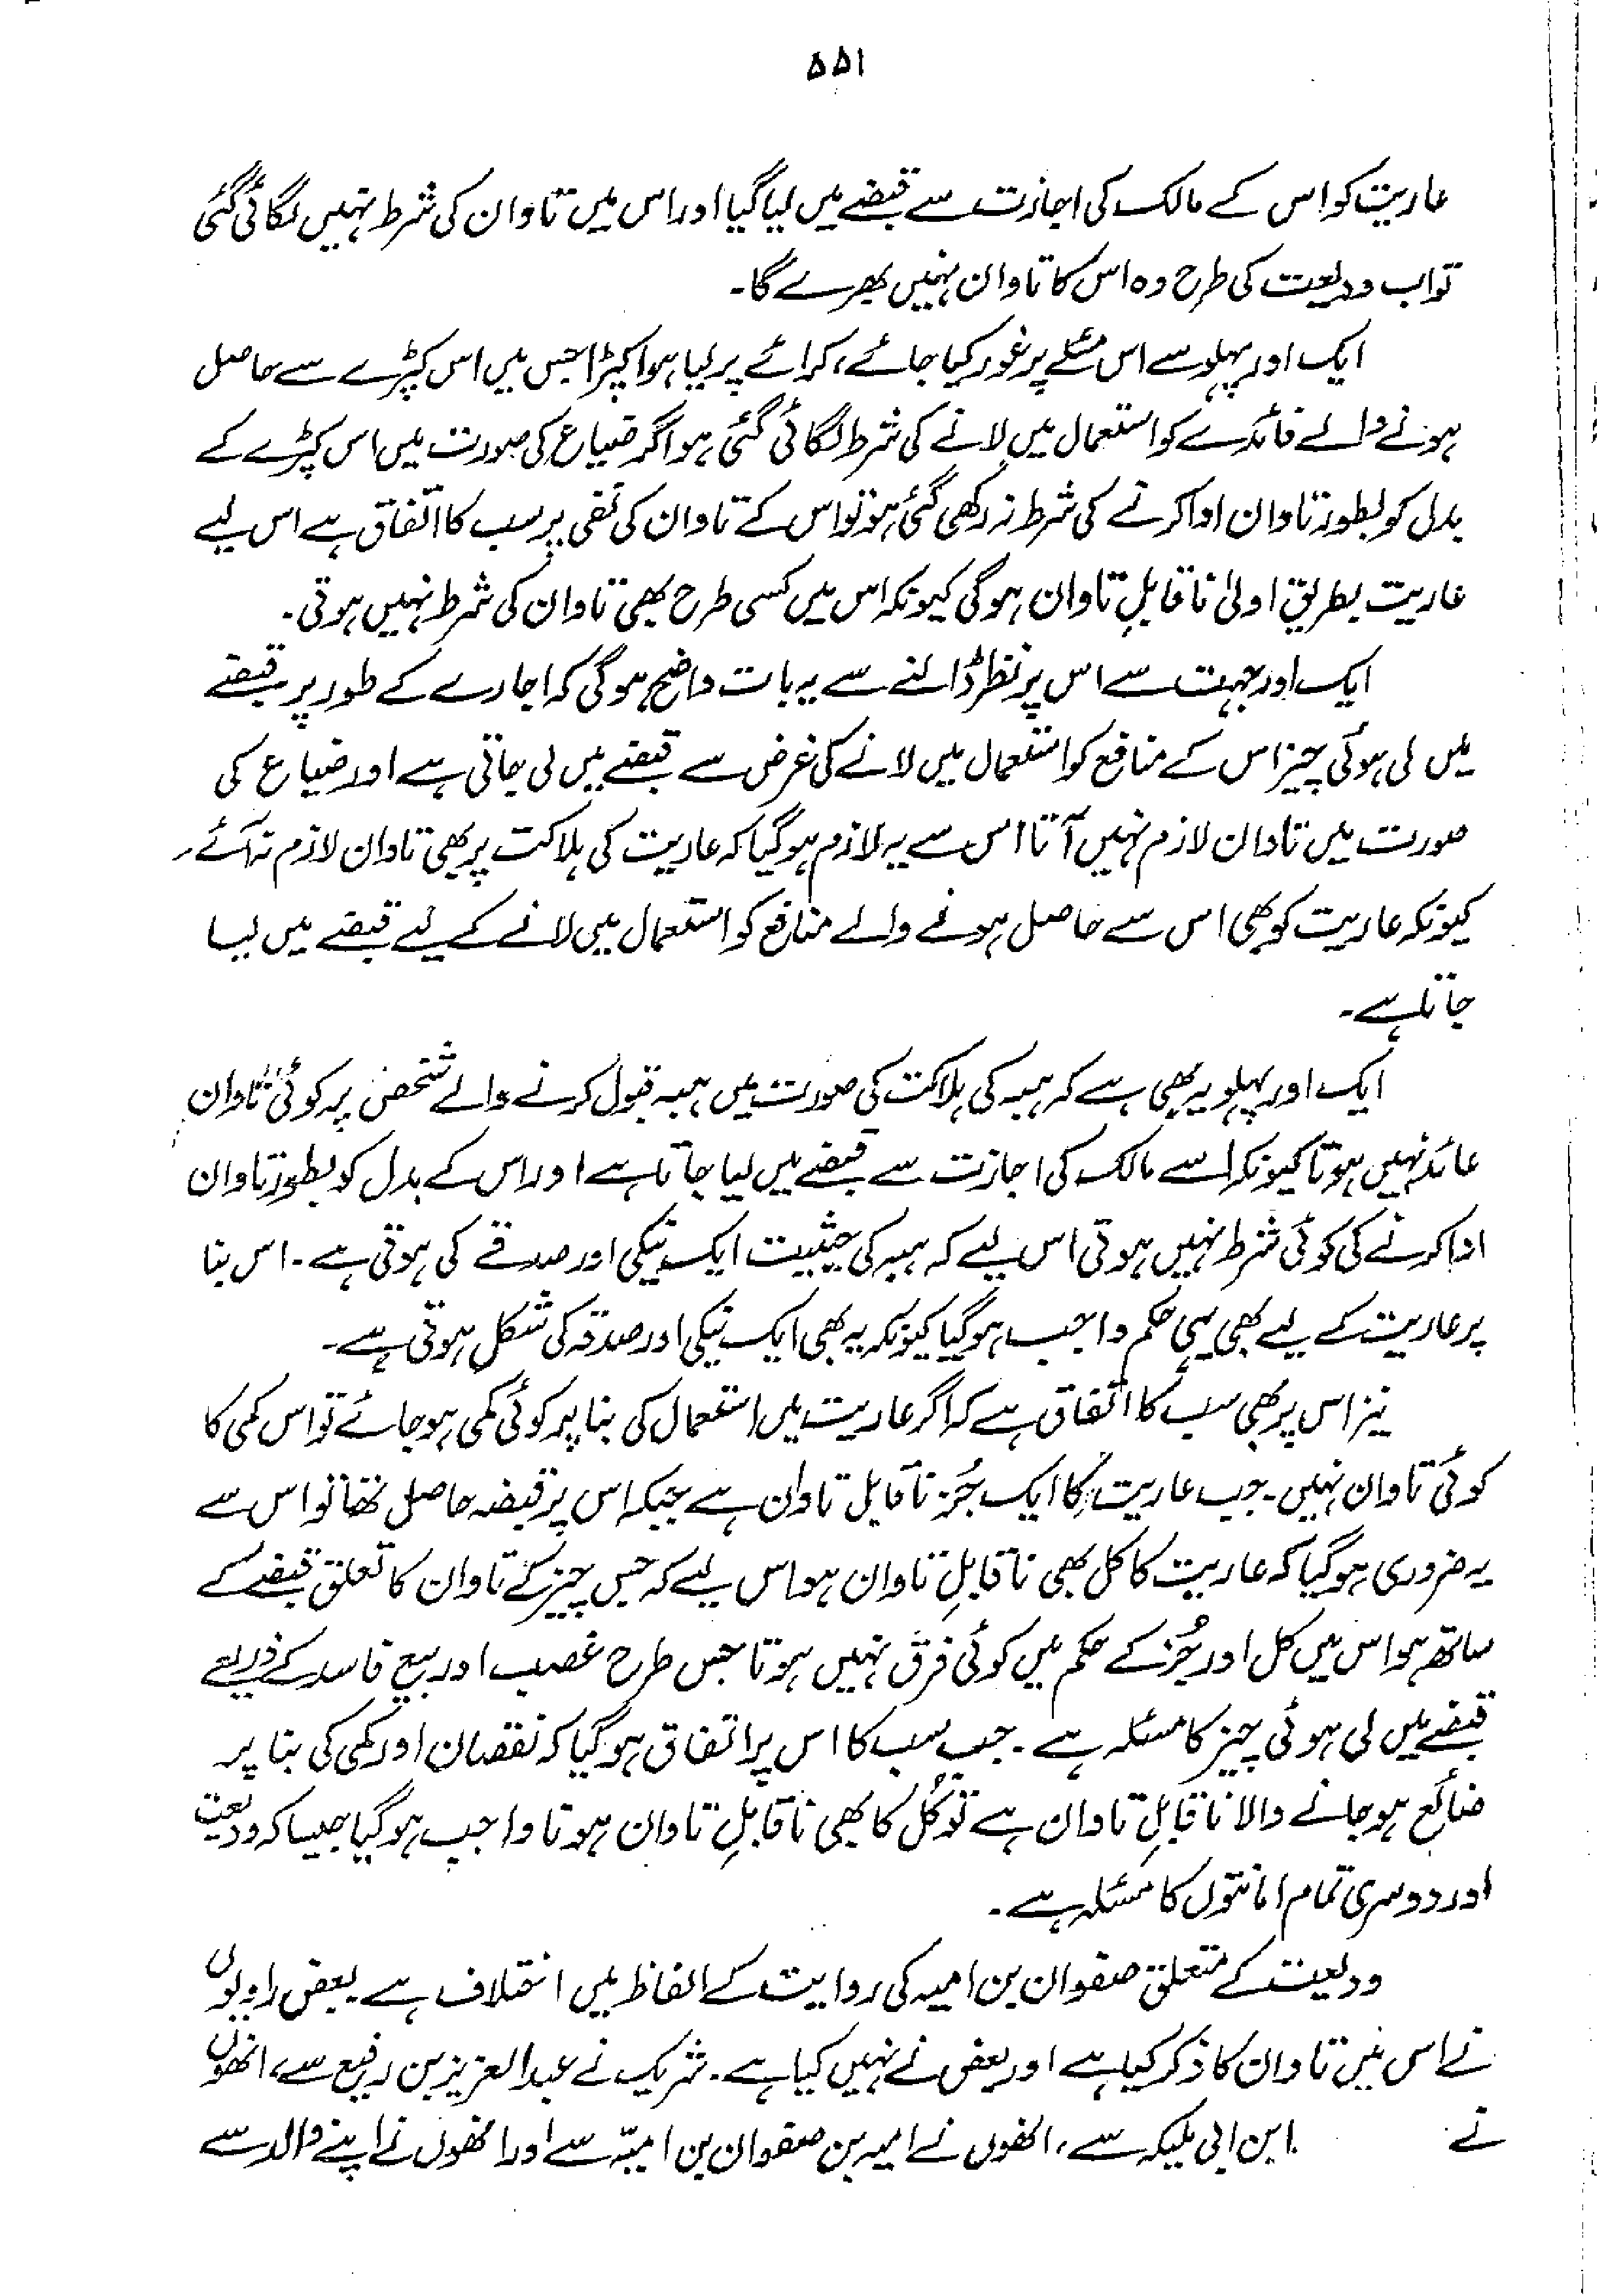 ۵۵۱
عاریت کو اس کے مالک کی اجازت سے قبضے میں لیا گیا اور اس میں تاوان کی شرط نہیں لگائی گئی
تو اب ودیعت کی طرح وہ اس کا تاوان نہیں بھرے گا۔
ایک اور پہلو سے اس مسئلے پر غور کیا جائے، کرائے پر لیا ہوا کپڑا جس میں اس کپڑے سے حاصل
ہونے والے فائدے کو استعمال میں لانے کی شرط لگائی گئی ہو اگر ضیاع کی صورت میں اس کپڑے کے
بدل کو بطور تاوان ادا کرنے کی شرط نہ رکھی گئی ہو تو اس کے تاوان کی نفی پر سب کا اتفاق ہے اس لیے
عاریت بطریق اولیٰ ناقابلِ تاوان ہوگی کیونکہ اس میں کسی طرح بھی تاوان کی شرط نہیں ہوتی۔
ایک اور جہت سے اس پر نظر ڈالنے سے یہ بات واضح ہوگی کہ اجارے کے طور پر قبضے
میں لی ہوئی چیز اس کے منافع کو استعمال میں لانے کی غرض سے قبضے میں لی جاتی ہے اور ضیاع کی
صورت میں تاوان لازم نہیں آتا اس سے یہ لازم ہوگیا کہ عاریت کی ہلاکت پر بھی تاوان لازم نہ آئے۔
کیونکہ عاریت کو بھی اس سے حاصل ہونے والے منافع کو استعمال میں لانے کے لیے قبضے میں لیا
جاتا ہے۔
ایک اور پہلو یہ بھی ہے کہ ہبہ کی ہلاکت کی صورت میں ہبہ قبول کرنے والے شخص پر کوئی تاوان
عائد نہیں ہوتا کیونکہ اسے مالک کی اجازت سے قبضے میں لیا جاتا ہے اور اس کے بدل کو بطور تاوان
ادا کرنے کی کوئی شرط نہیں ہوتی اس لیے کہ ہبہ کی حیثیت ایک نیکی اور صدقے کی ہوتی ہے۔ اس بنا
پر عاریت کے لیے بھی یہی حکم واجب ہوگیا کیونکہ یہ بھی ایک نیکی اور صدقہ کی شکل ہوتی ہے۔
نیز اس پر بھی سب کا اتفاق ہے کہ اگر عاریت میں استعمال کی بنا پر کوئی کمی ہو جائے تو اس کمی کا
کوئی تاوان نہیں۔ جب عاریت کا ایک جُز ناقابل تاوان ہے جبکہ اس پر قبضہ حاصل تھا تو اس سے
یہ ضروری ہوگیا کہ عاریت کا کل بھی ناقابلِ تاوان ہو اس لیے کہ جس چیز کے تاوان کا تعلق قبضے کے
ساتھ ہو اس میں کل اور جُز کے حکم میں کوئی فرق نہیں ہوتا جس طرح غصب اور بیع فاسد کے ذریعے
قبضے میں لی ہوئی چیز کا مسئلہ ہے۔ جب سب کا اس پر اتفاق ہوگیا کہ نقصان اور کمی کی بنا پر
ضائع ہو جانے والا ناقابلِ تاوان ہے تو کُل کا بھی ناقابلِ تاوان ہونا واجب ہوگیا جیسا کہ ودیعت
اور دوسری تمام امانتوں کا مسئلہ ہے۔
ودیعت کے متعلق صفوان بن امیہ کی روایت کے الفاظ میں اختلاف ہے بعض راویوں
نے اس میں تاوان کا ذکر کیا ہے اور بعض نے نہیں کیا ہے۔ شریک نے عبدالعزیز بن رفیع سے، انھوں
نے ابن ابی ملیکہ سے، انھوں نے امیہ بن صفوان بن امیّہ سے اور انھوں نے اپنے والد سے